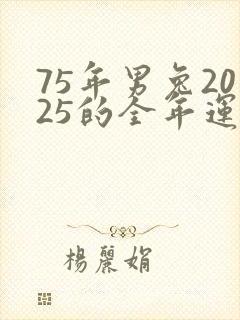 75年男兔20
25的全年運
楊麗娟